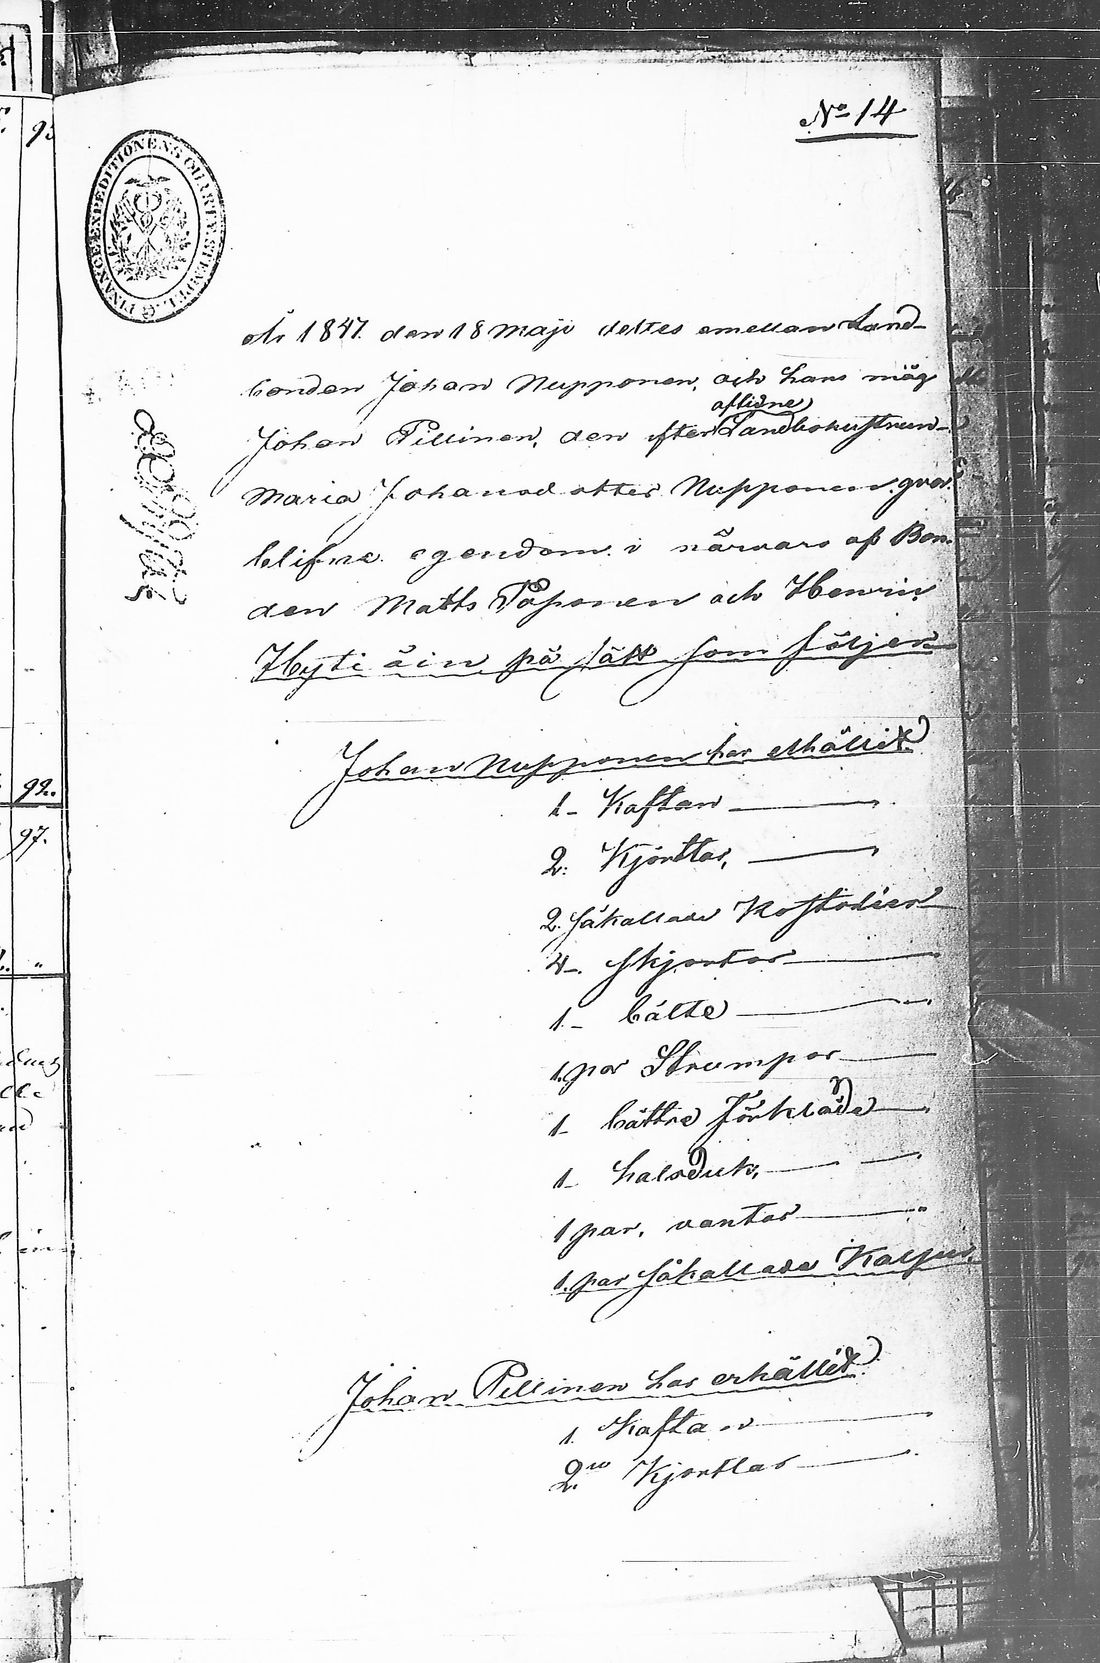 No 14
FINANCE EXPEDITIONENS CHARTÆ STEMPEL
År 1847. den 18 Maji deltes emellan Land-
bonden Johan Nupponen, och hans måg
aflidne
Johan Pillinen, den efter Landbohustrun
Maria Johansdotter Nupponen qvar
blifne egendom i närvaro af Bon-
den Matts Poponen och Henric
Hytiäin på sätt som följer
Johan Nupponen har erhållit
1- Kaftan
2. Kjortlar,
2. såkallade Kostolier
4-. skjortor
1- bälte
1. par Strumpor
1- bättre Förkläde
1- halsduk,
1 par, vantar
1. par såkallade Kaljur
Johan Pillinen har erhållit
1. Kaftan
2. Kjortlar
93
92.
97.